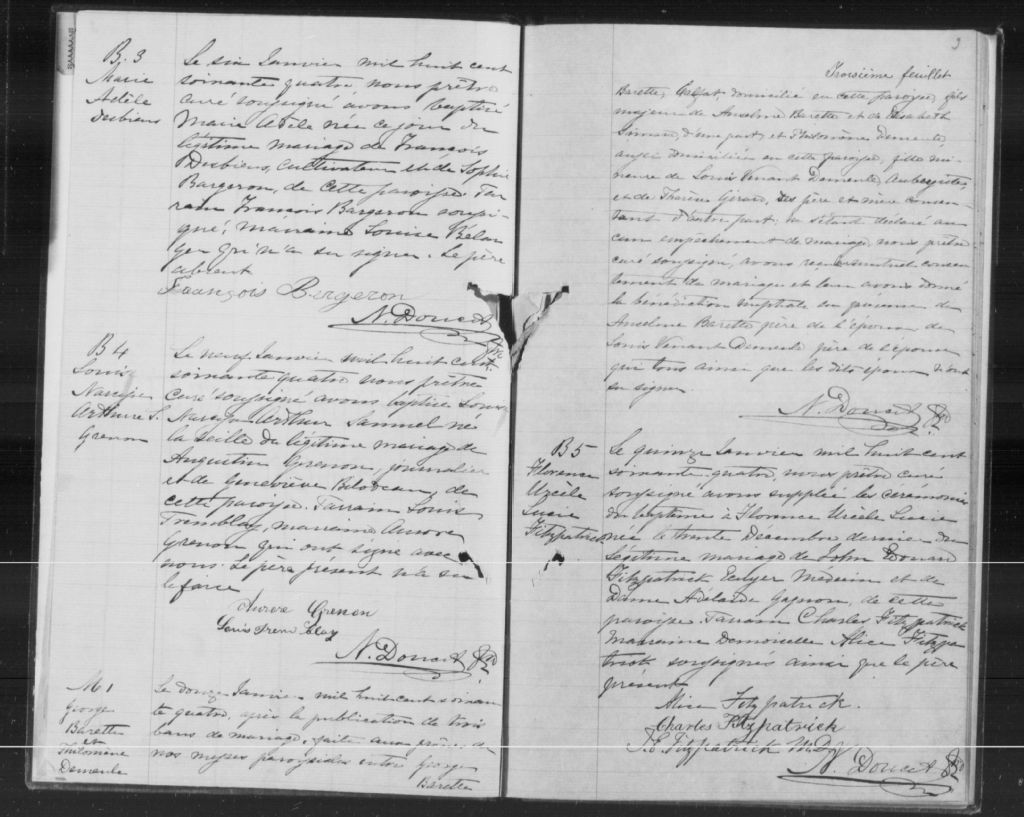 B. 3
Marie
Adèle
Desbiens
Le six Janvier mil huit cent
soixante quatre nous prêtre
curé soussigné avons baptisé
Marie Adèle née ce jour du
légitime mariage de François
Desbiens, Cultivateur et de Sophie
Bargeron, de cette paroisse. Par
rain François Bargeron soussi-
gné; marraine Louise Bélan
ger qui n'a su signer. Le père
absent
François Bergeron
N. Doucet Ptre
B 4
Louis
Narcisse
Arthur S.
Grenon
Le neuf Janvier mil huit cent
soixante quatre nous prêtre
curé soussigné avons baptisé Louis
Narcisse Arthur Samuel né
la veille du légitime mariage de
Augustin Grenon, journalier
et de Geneviève Bilodeau, de
cette paroisse. Parrain Louis
Tremblay, marraine Aurore
Grenon qui ont signé avec
nous. Le père présent n'a su
le faire
Aurore Grenon
Louis Tremblay
N. Doucet Ptre
M 1
George
Barette
et
Philomène
Demeule
Le douze Janvier mil huit cent soixan
te quatre, après la publication de trois
bans de mariage, faite aux prônes de
nos messes paroissiales entre George
Barette
3
Troisième feuillet
Barette, Calfat domicilié en cette paroisse, fils
majeur de Anselme Barette et de Elisabeth
Simard d'une part, et Philomène Demeule,
aussi domiciliée en cette paroisse, fille mi-
neure de Louis Venant Demeule, Aubergiste
et de Thérèse Girard, ses père et mère consen-
tant d'autre part; ne s'étant déclaré au
cun empêchement de mariage, nous prêtre
curé soussigné, avons reçu mutuel consen
tement de mariage et leur avons donné
la bénédiction nuptiale en présence de
Anselme Barette père de l'époux, de
Louis Venant Demeule père de l'épouse
qui tous ainsi que les dits époux n'ont
su signer.
N. Doucet Ptre
B 5
Florence
Urcèle
Lucie
Fitzpatrick
Le quinze Janvier mil huit cent
soixante quatre, nous prêtre curé
soussigné avons supplée les ceremonies
du baptême à Florence Urcèle Lucie
née le trente Décembre dernier du
légitime mariage de John Edouard
Fitzpatrick Ecuyer Médecin et de
Dame Adélaide Gagnon, de cette
paroisse. Parrain Charles Fitzpatrick
Marraine Demoiselle Alice Fitzpa
trick soussignés ainsi que le père
présent
Alice Fitzpatrick.
Charles Fitzpatrick
J. E. Fitzpatrick M.D.
N. Doucet Ptre